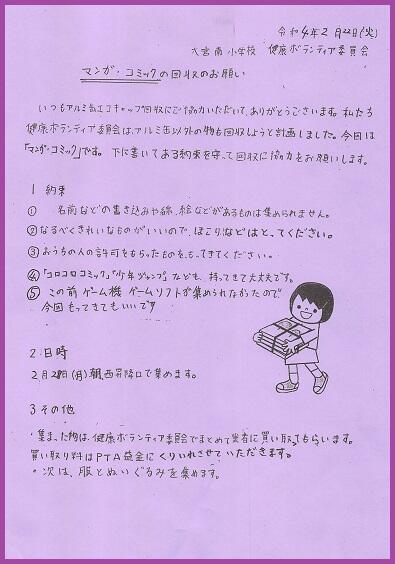 令和4年2月22日(火)
大宮南小学校 健康ボランティア委員会
マンガ・コミックの回収のお願い
いつもアルミ缶エコキャップ回収にご協力いただいて、ありがとうございます。私たち
健康ボランティア委員会は、アルミ缶以外の物も回収しようと計画しました。今回は
「マンガ・コミック」です。下に書いてある約束を守って回収に協力をお願いします。
1 約束
① 名前などの書き込みや線、絵などがあるものは集められません。
②なるべくきれいなものがいいので、ほこりなどはとってください。
③おうちの人の許可をもらったものをもってきてください。
④「コロコロコミック」「少年ジャンプ」なども、持ってきて大丈夫です。
⑤ この前ゲーム機 ゲームソフトが集められなかったので
今回もってきてもいいです
2 日時
2月28日(月)朝、西昇降口で集めます。
3 その他
・集まった物は、健康ボランティア委員会でまとめて業者に買い取ってもらいます。
買い取り料はPTA益金にくりいれさせていただきます。
・次は、服とぬいぐるみを集めます。